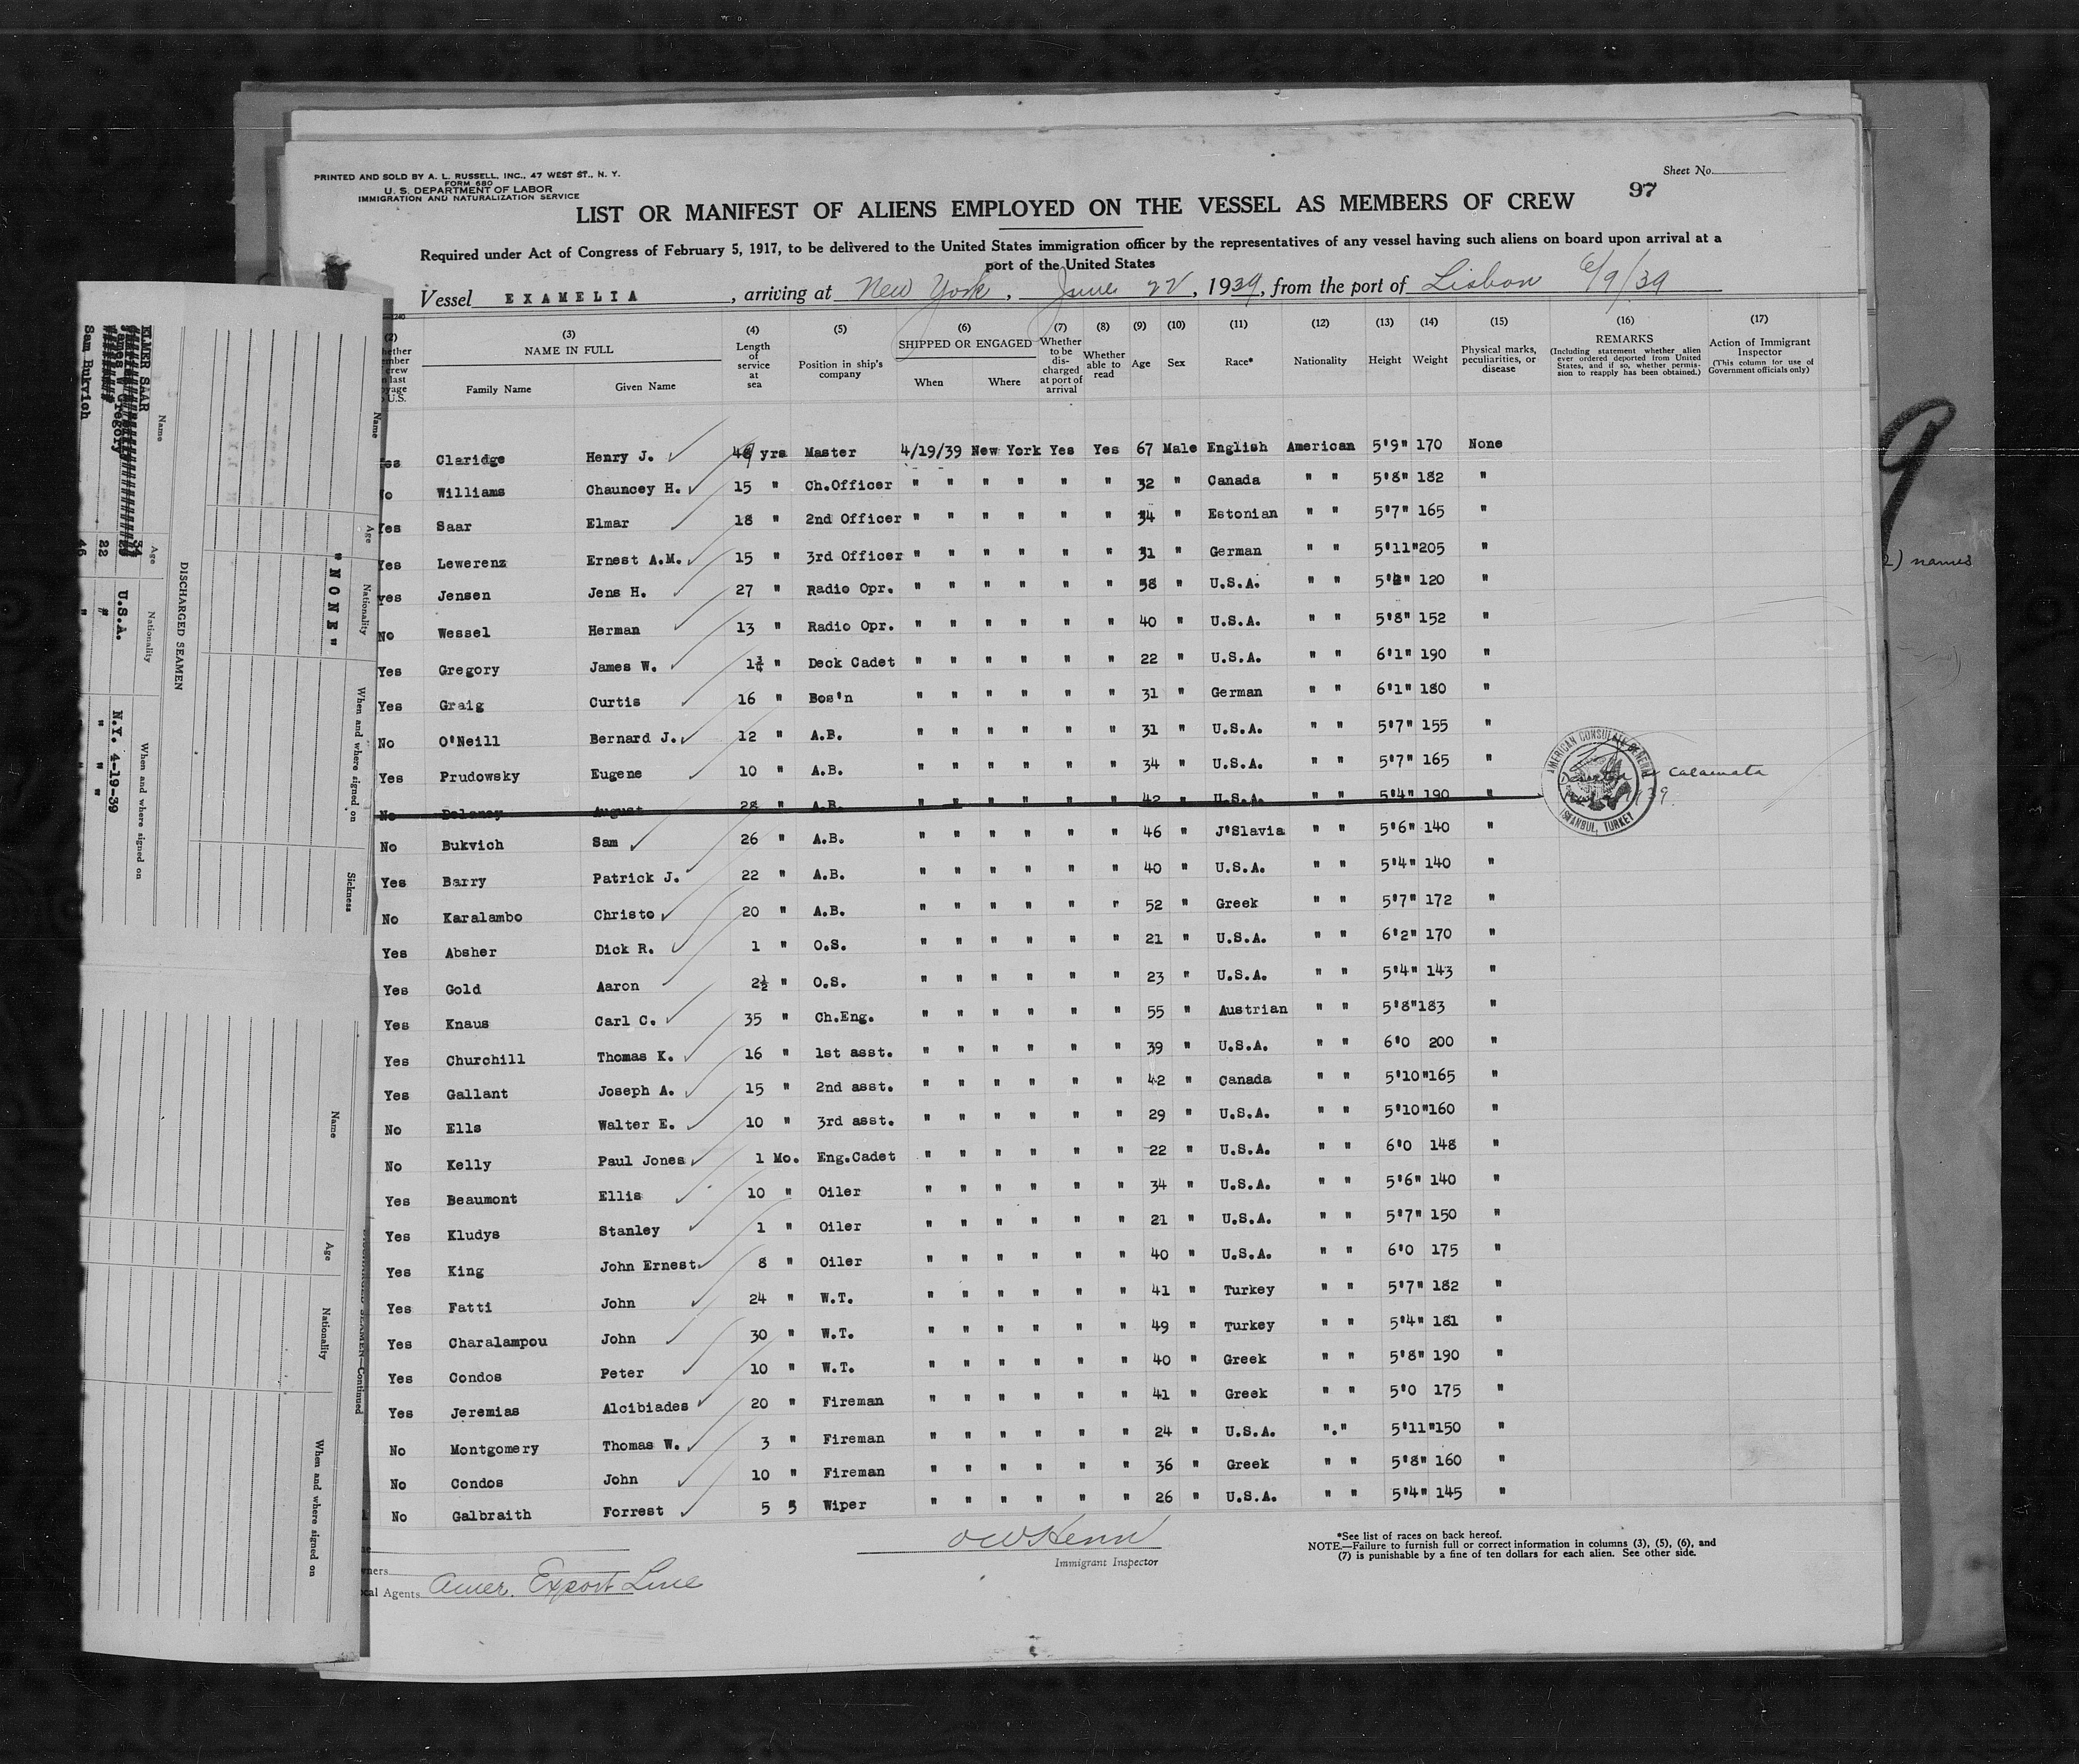 PRINTED AND SOLD BY A. L. RUSSELL, INC., 47 WEST ST., N. Y.
FORM 680
U. S. DEPARTMENT OF LABOR
IMMIGRATION AND NATURALIZATION SERVICE
Sheet No.
97
LIST OR MANIFEST OF ALIENS EMPLOYED ON THE VESSEL AS MEMBERS OF CREW
Required under Act of Congress of February 5, 1917, to be delivered to the United States immigration officer by the representatives of any vessel having such aliens on board upon arrival at a
port of the United States
Vessel EXAMELIA, arriving at New York, June 22, 1939, from the port of Lisbon 6/9/39
(2) (3) NAME IN FULL Family Name Given Name (4) Length of service at sea (5) Position in ship's company (6) SHIPPED OR ENGAGED When Where (7) Whether to be discharged at port of arrival (8) Whether able to read (9) Age (10) Sex (11) Race* (12) Nationality (13) Height (14) Weight (15) Physical marks, peculiarities, or disease (16) REMARKS (Including statement whether alien ever ordered deported from United States, and if so, whether permission to reapply has been obtained.) (17) Action of Immigrant Inspector (This column for use of Government officials only)
Claridge Henry J. yrs Master 4/19/39 New York Yes Yes 67 Male English American 5'9" 170 None
No Williams Chauncey H. 15 " Ch.Officer " " " " " " 32 " Canada " " 5'8" 182 "
Yes Saar Elmar 18 " 2nd Officer " " " " " " 34 " Estonian " " 5'7" 165 "
Yes Lewerenz Ernest A.M. 15 " 3rd Officer " " " " " " 31 " German " " 5'11" 205 "
Yes Jensen Jens H. 27 " Radio Opr. " " " " " " 58 " U.S.A. " " 120 "
No Wessel Herman 13 " Radio Opr. " " " " " " 40 " U.S.A. " " 5'8" 152 "
Yes Gregory James W. 1¾ " Deck Cadet " " " " " " 22 " U.S.A. " " 6'1" 190 "
Yes Graig Curtis 16 " Bos'n " " " " " " 31 " German " " 6'1" 180 "
No O'Neill Bernard J. 12 " A.B. " " " " " " 31 " U.S.A. " " 5'7" 155 "
Yes Prudowsky Eugene 10 " A.B. " " " " " " 34 " U.S.A. " " 5'7" 165 "
No Delaney August 28 " A.B. " " " " " " 42 " U.S.A. " " 5'4" 190 "
AMERICAN CONSULATE GENERAL ISTANBUL, TURKEY
Calamata
No Bukvich Sam 26 " A.B. " " " " " " 46 " J'Slavia " " 5'6" 140 "
Yes Barry Patrick J. 22 " A.B. " " " " " " 40 " U.S.A. " " 5'4" 140 "
No Karalambo Christo 20 " A.B. " " " " " " 52 " Greek " " 5'7" 172 "
Yes Absher Dick R. 1 " O.S. " " " " " " 21 " U.S.A. " " 6'2" 170 "
Yes Gold Aaron 2½ " O.S. " " " " " " 23 " U.S.A. " " 5'4" 143 "
Yes Knaus Carl C. 35 " Ch.Eng. " " " " " " 55 " Austrian " " 5'8" 183 "
Yes Churchill Thomas K. 16 " 1st asst. " " " " " " 39 " U.S.A. " " 6'0 200 "
Yes Gallant Joseph A. 15 " 2nd asst. " " " " " " 42 " Canada " " 5'10" 165 "
No Ells Walter E. 10 " 3rd asst. " " " " " " 29 " U.S.A. " " 5'10" 160 "
No Kelly Paul Jones 1 Mo. Eng.Cadet " " " " " " 22 " U.S.A. " " 6'0 148 "
Yes Beaumont Ellis 10 " Oiler " " " " " " 34 " U.S.A. " " 5'6" 140 "
Yes Kludys Stanley 1 " Oiler " " " " " " 21 " U.S.A. " " 5'7" 150 "
Yes King John Ernest 8 " Oiler " " " " " " 40 " U.S.A. " " 6'0 175 "
Yes Fatti John 24 " W.T. " " " " " " 41 " Turkey " " 5'7" 182 "
Yes Charalampou John 30 " W.T. " " " " " " 49 " Turkey " " 5'4" 181 "
Yes Condos Peter 10 " W.T. " " " " " " 40 " Greek " " 5'8" 190 "
Yes Jeremias Alcibiades 20 " Fireman " " " " " " 41 " Greek " " 5'0 175 "
No Montgomery Thomas W. 3 " Fireman " " " " " " 24 " U.S.A. "." 5'11" 150 "
No Condos John 10 " Fireman " " " " " " 36 " Greek " " 5'8" 160 "
No Galbraith Forrest 5 5 Wiper " " " " " " 26 " U.S.A. " " 5'4" 145 "
Immigrant Inspector
*See list of races on back hereof.
NOTE.—Failure to furnish full or correct information in columns (3), (5), (6), and
(7) is punishable by a fine of ten dollars for each alien. See other side.
Agents Amer. Export Line
names
Name Age Nationality When and where signed on Sickness
"NONE"
DISCHARGED SEAMEN
Name Age Nationality When and where signed on
ELMER SAAR 34
James W Gregory 22 U.S.A. N.Y. 4-19-39
Sam Bukvich 46 " "
SEAMEN—Continued
Name Age Nationality When and where signed on